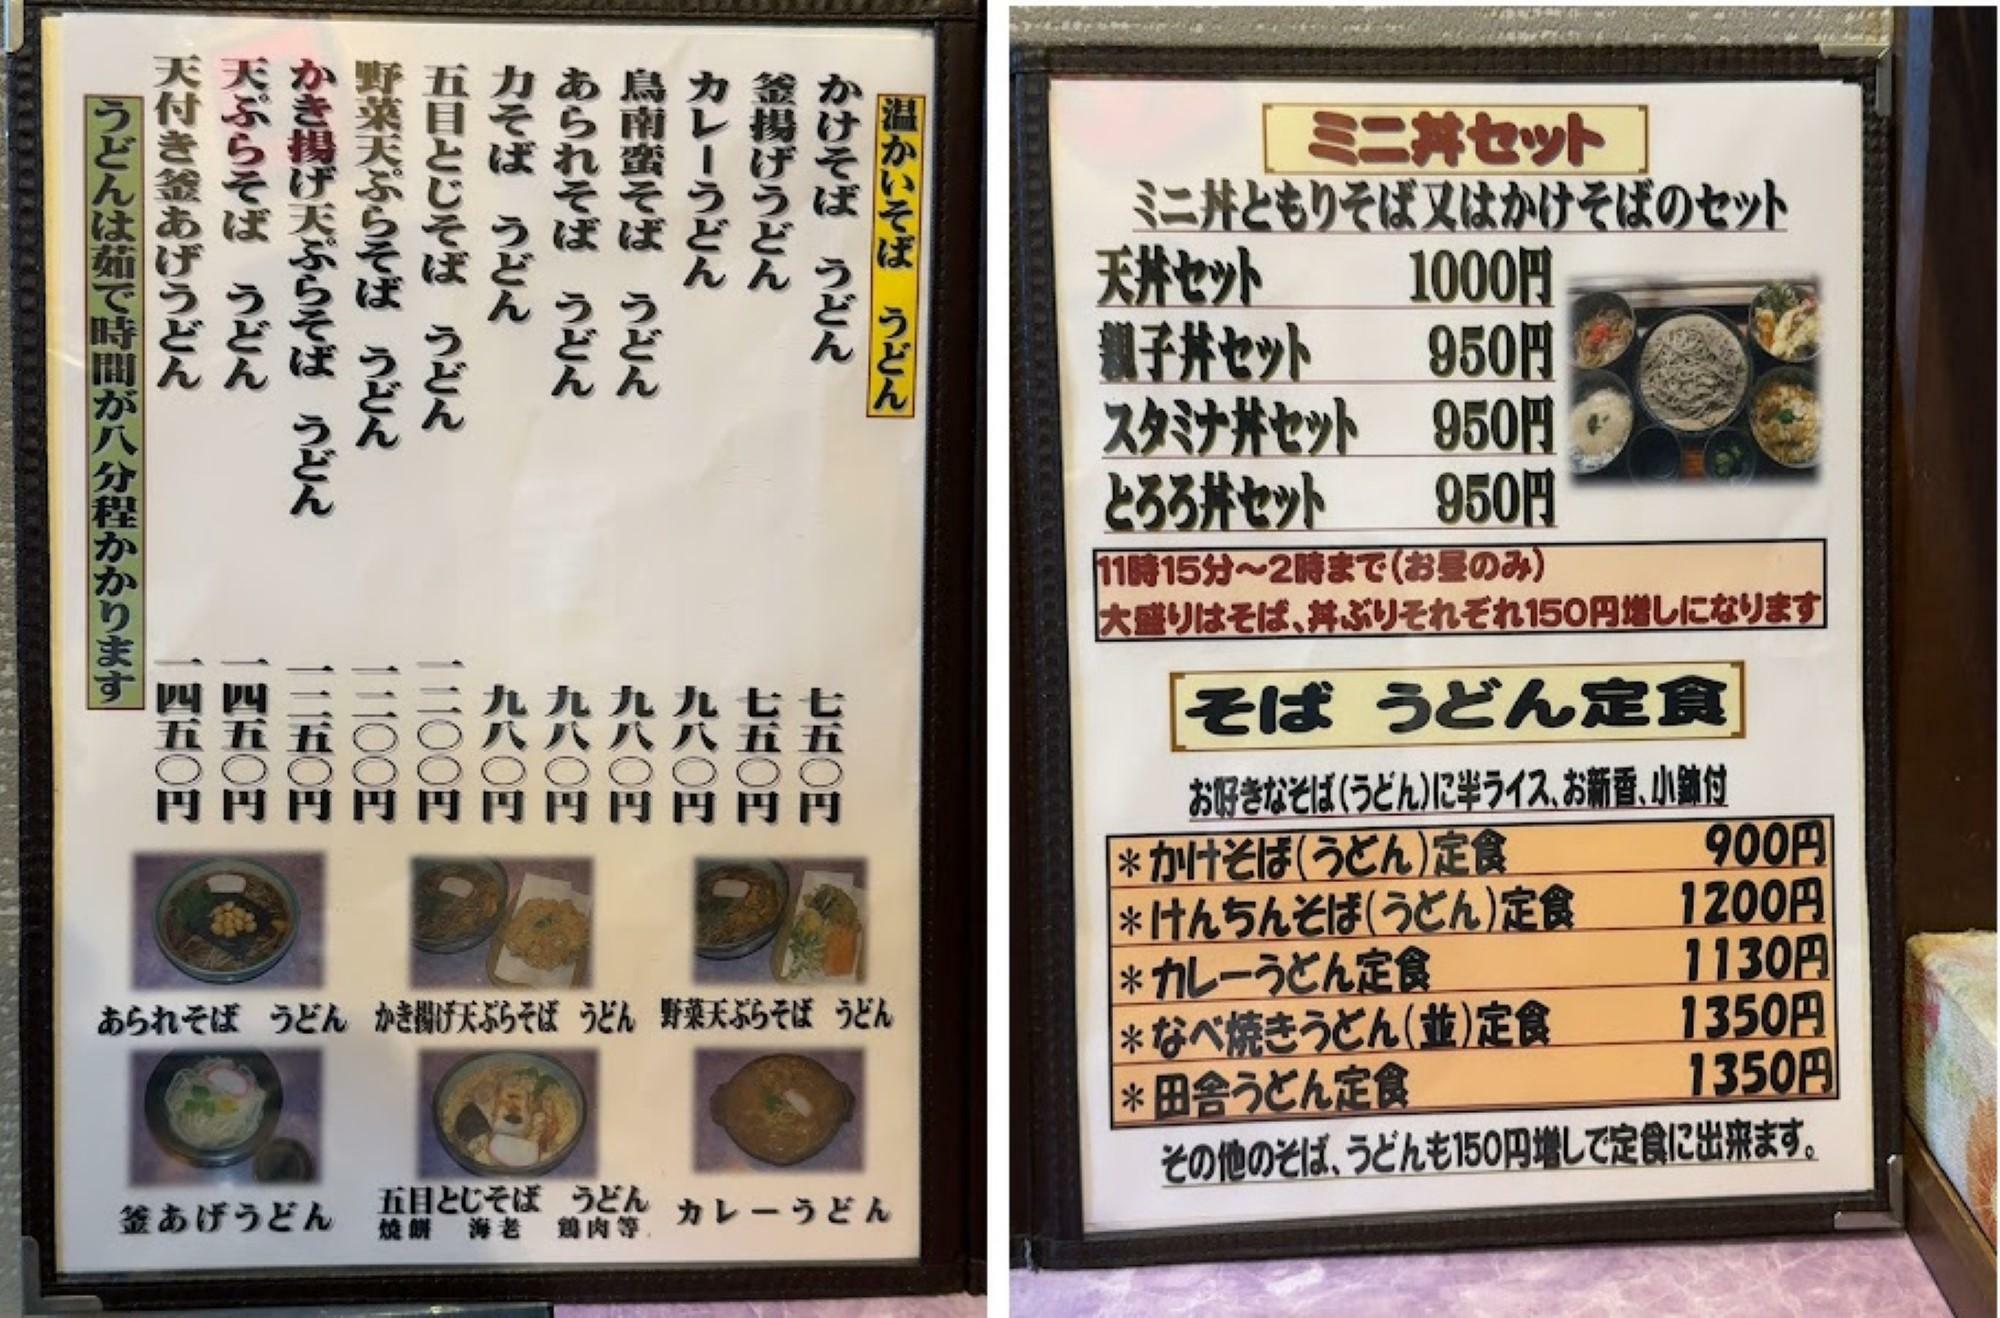 温かいそば　うどん
かけそば　うどん　七五〇円
釜揚げうどん　七五〇円
カレーうどん　九八〇円
鳥南蛮そば　うどん　九八〇円
あられそば　うどん　九八〇円
力そば　うどん　九八〇円
五目とじそば　うどん　一二〇〇円
野菜天ぷらそば　うどん　一二〇〇円
かき揚げ天ぷらそば　うどん　一二五〇円
天ぷらそば　うどん　一四五〇円
天付き釜あげうどん　一四五〇円
うどんは茹で時間が八分程かかります
あられそば　うどん
かき揚げ天ぷらそば　うどん
野菜天ぷらそば　うどん
釜あげうどん
五目とじそば　うどん
焼餅　海老　鶏肉等
カレーうどん
ミニ丼セット
ミニ丼ともりそば又はかけそばのセット
天丼セット　1000円
親子丼セット　950円
スタミナ丼セット　950円
とろろ丼セット　950円
11時15分～2時まで(お昼のみ)
大盛りはそば、丼ぶりそれぞれ150円増しになります
そば　うどん定食
お好きなそば(うどん)に半ライス、お新香、小鉢付
＊かけそば(うどん)定食　900円
＊けんちんそば(うどん)定食　1200円
＊カレーうどん定食　1130円
＊なべ焼きうどん(並)定食　1350円
＊田舎うどん定食　1350円
その他のそば、うどんも150円増しで定食に出来ます。